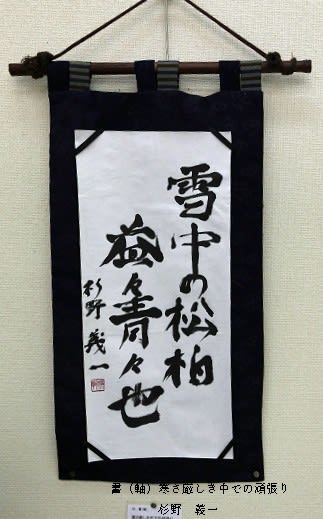 雪中の松柏
益々青々也
杉野義一
書（軸）寒さ厳しき中での頑張り
杉野 義一